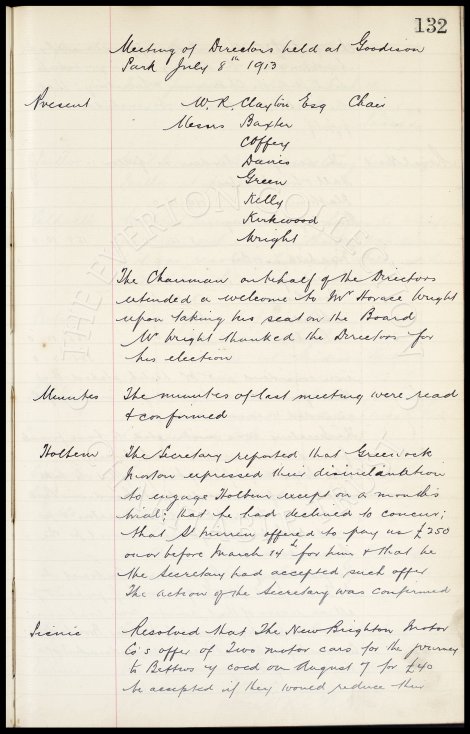 132
Meeting of Directors held at Goodison
Park July 8th 1913
Present W. R. Clayton Esq Chair
Messrs Baxter
Coffey
Davies
Green
Kelly
Kirkwood
Wright
The Chairman on behalf of the Directors
extended a welcome to Mr Horace Wright
upon taking his seat on the Board
Mr Wright thanked the Directors for
his election
Minutes The minutes of last meeting were read
& confirmed
Holbem The Secretary reported that Greenock
Morton expressed their disinclination
to engage Holbem except on a month's
trial; that he had declined to concur;
that St Mirren offered to pay us £250
on or before March 14th for him & that he
the Secretary had accepted such offer
The action of the Secretary was confirmed
Picnic Resolved that The New Brighton Motor
Co's offer of Two motor cars for the journey
to Bettws y coed on August 7 for £40
be accepted if they would reduce their
THE EVERTON COLLECTION